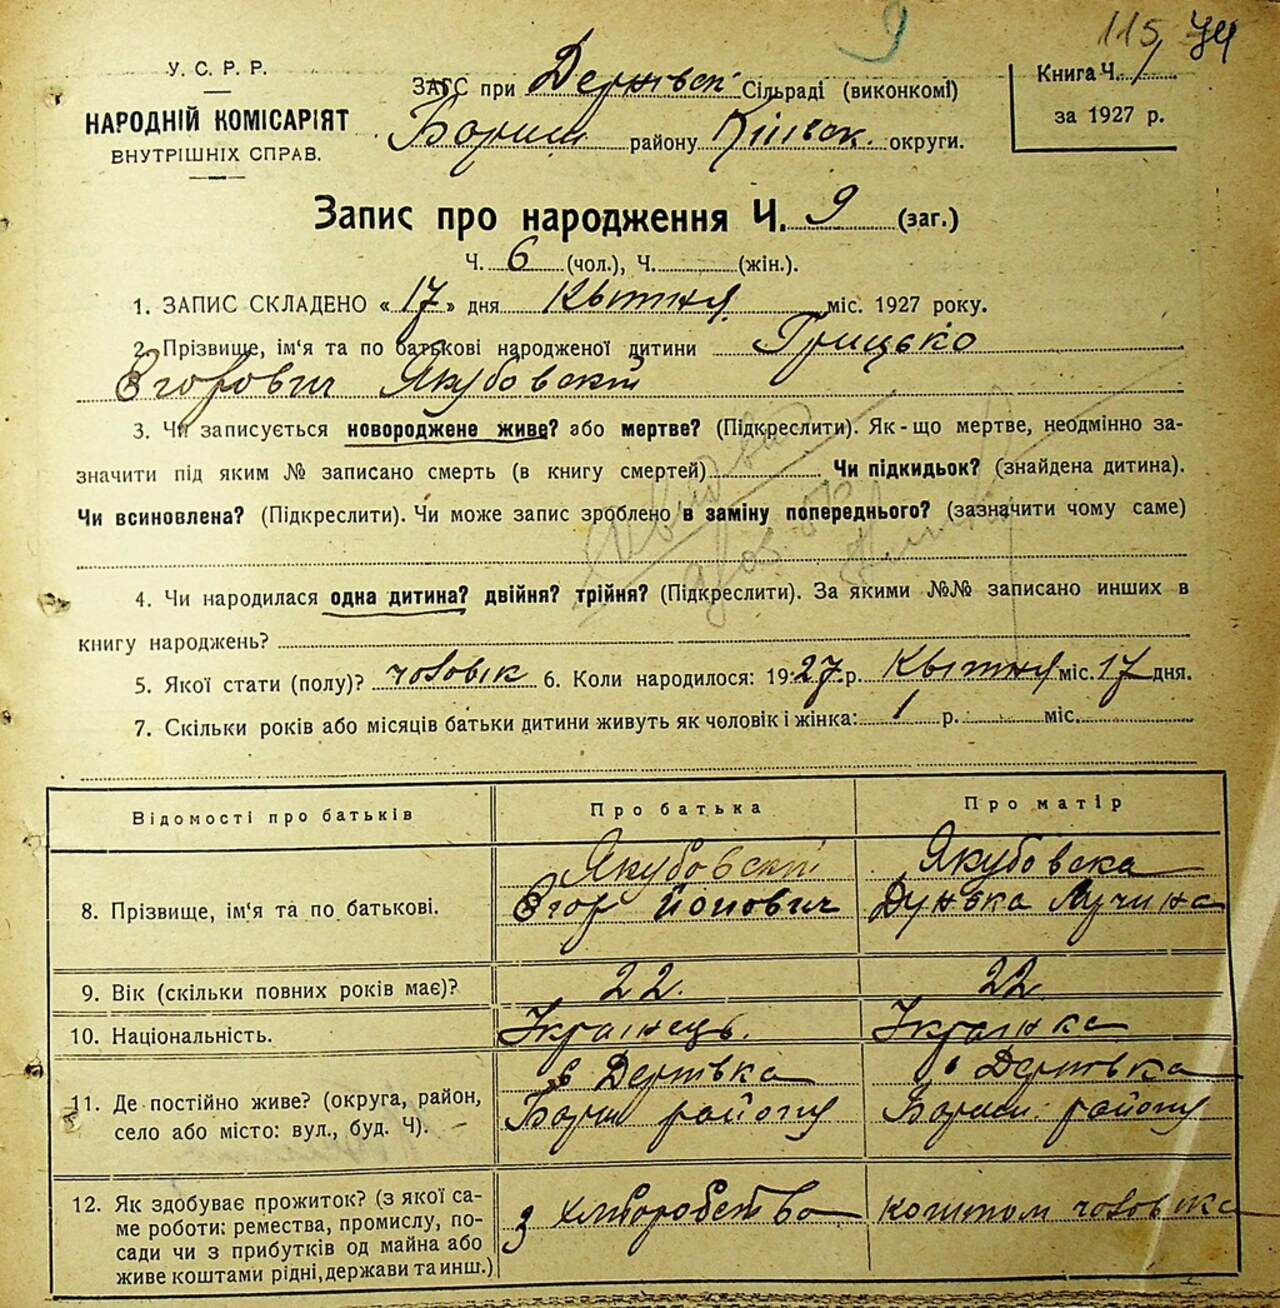 9
115
У. С. Р. Р.
НАРОДНІЙ КОМІСАРІЯТ
ВНУТРІШНІХ СПРАВ.
ЗАГС при Сільраді (виконкомі)
району округи.
Книга Ч. 1
за 1927 р.
Запис про народження Ч. 9 (заг.)
Ч. 6 (чол.), Ч. (жін.).
1. ЗАПИС СКЛАДЕНО «17» дня Квітня міс. 1927 року.
2. Прізвище, ім'я та по батькові народженої дитини Грицько
Єгорович Якубовскій
3. Чи записується новороджене живе? або мертве? (Підкреслити). Як-що мертве, неодмінно за-
значити під яким № записано смерть (в книгу смертей) Чи підкидьок? (знайдена дитина).
Чи всиновлена? (Підкреслити). Чи може запис зроблено в заміну попереднього? (зазначити чому саме)
4. Чи народилася одна дитина? двійня? трійня? (Підкреслити). За якими №№ записано инших в
книгу народжень?
5. Якої стати (полу)? чоловік 6. Коли народилося: 1927 р. Квітня міс. 17 дня.
7. Скільки років або місяців батьки дитини живуть як чоловік і жінка: 1 р. міс.
Відомості про батьків
Про батька
Про матір
8. Прізвище, ім'я та по батькові.
Якубовскій
Єгор Йопович
Якубовска
Дунька
9. Вік (скільки повних років має)?
22.
22.
10. Національність.
Українець.
Українка
11. Де постійно живе? (округа, район,
село або місто: вул., буд. Ч).
району
району
12. Як здобуває прожиток? (з якої са-
ме роботи: ремества, промислу, по-
сади чи з прибутків од майна або
живе коштами рідні, держави та инш.)
З хліборобства
коштом чоловіка